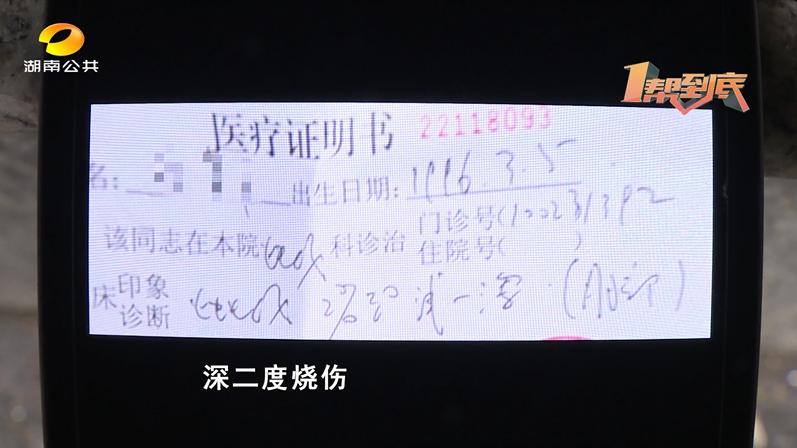 湖南公共
1帮到底
医疗证明书 22118093
名: 出生日期: 1996.3.5
该同志在本院 科诊治 门诊号(100231392
住院号( )
床印象
诊断 2% II° 浅一深
深二度烧伤